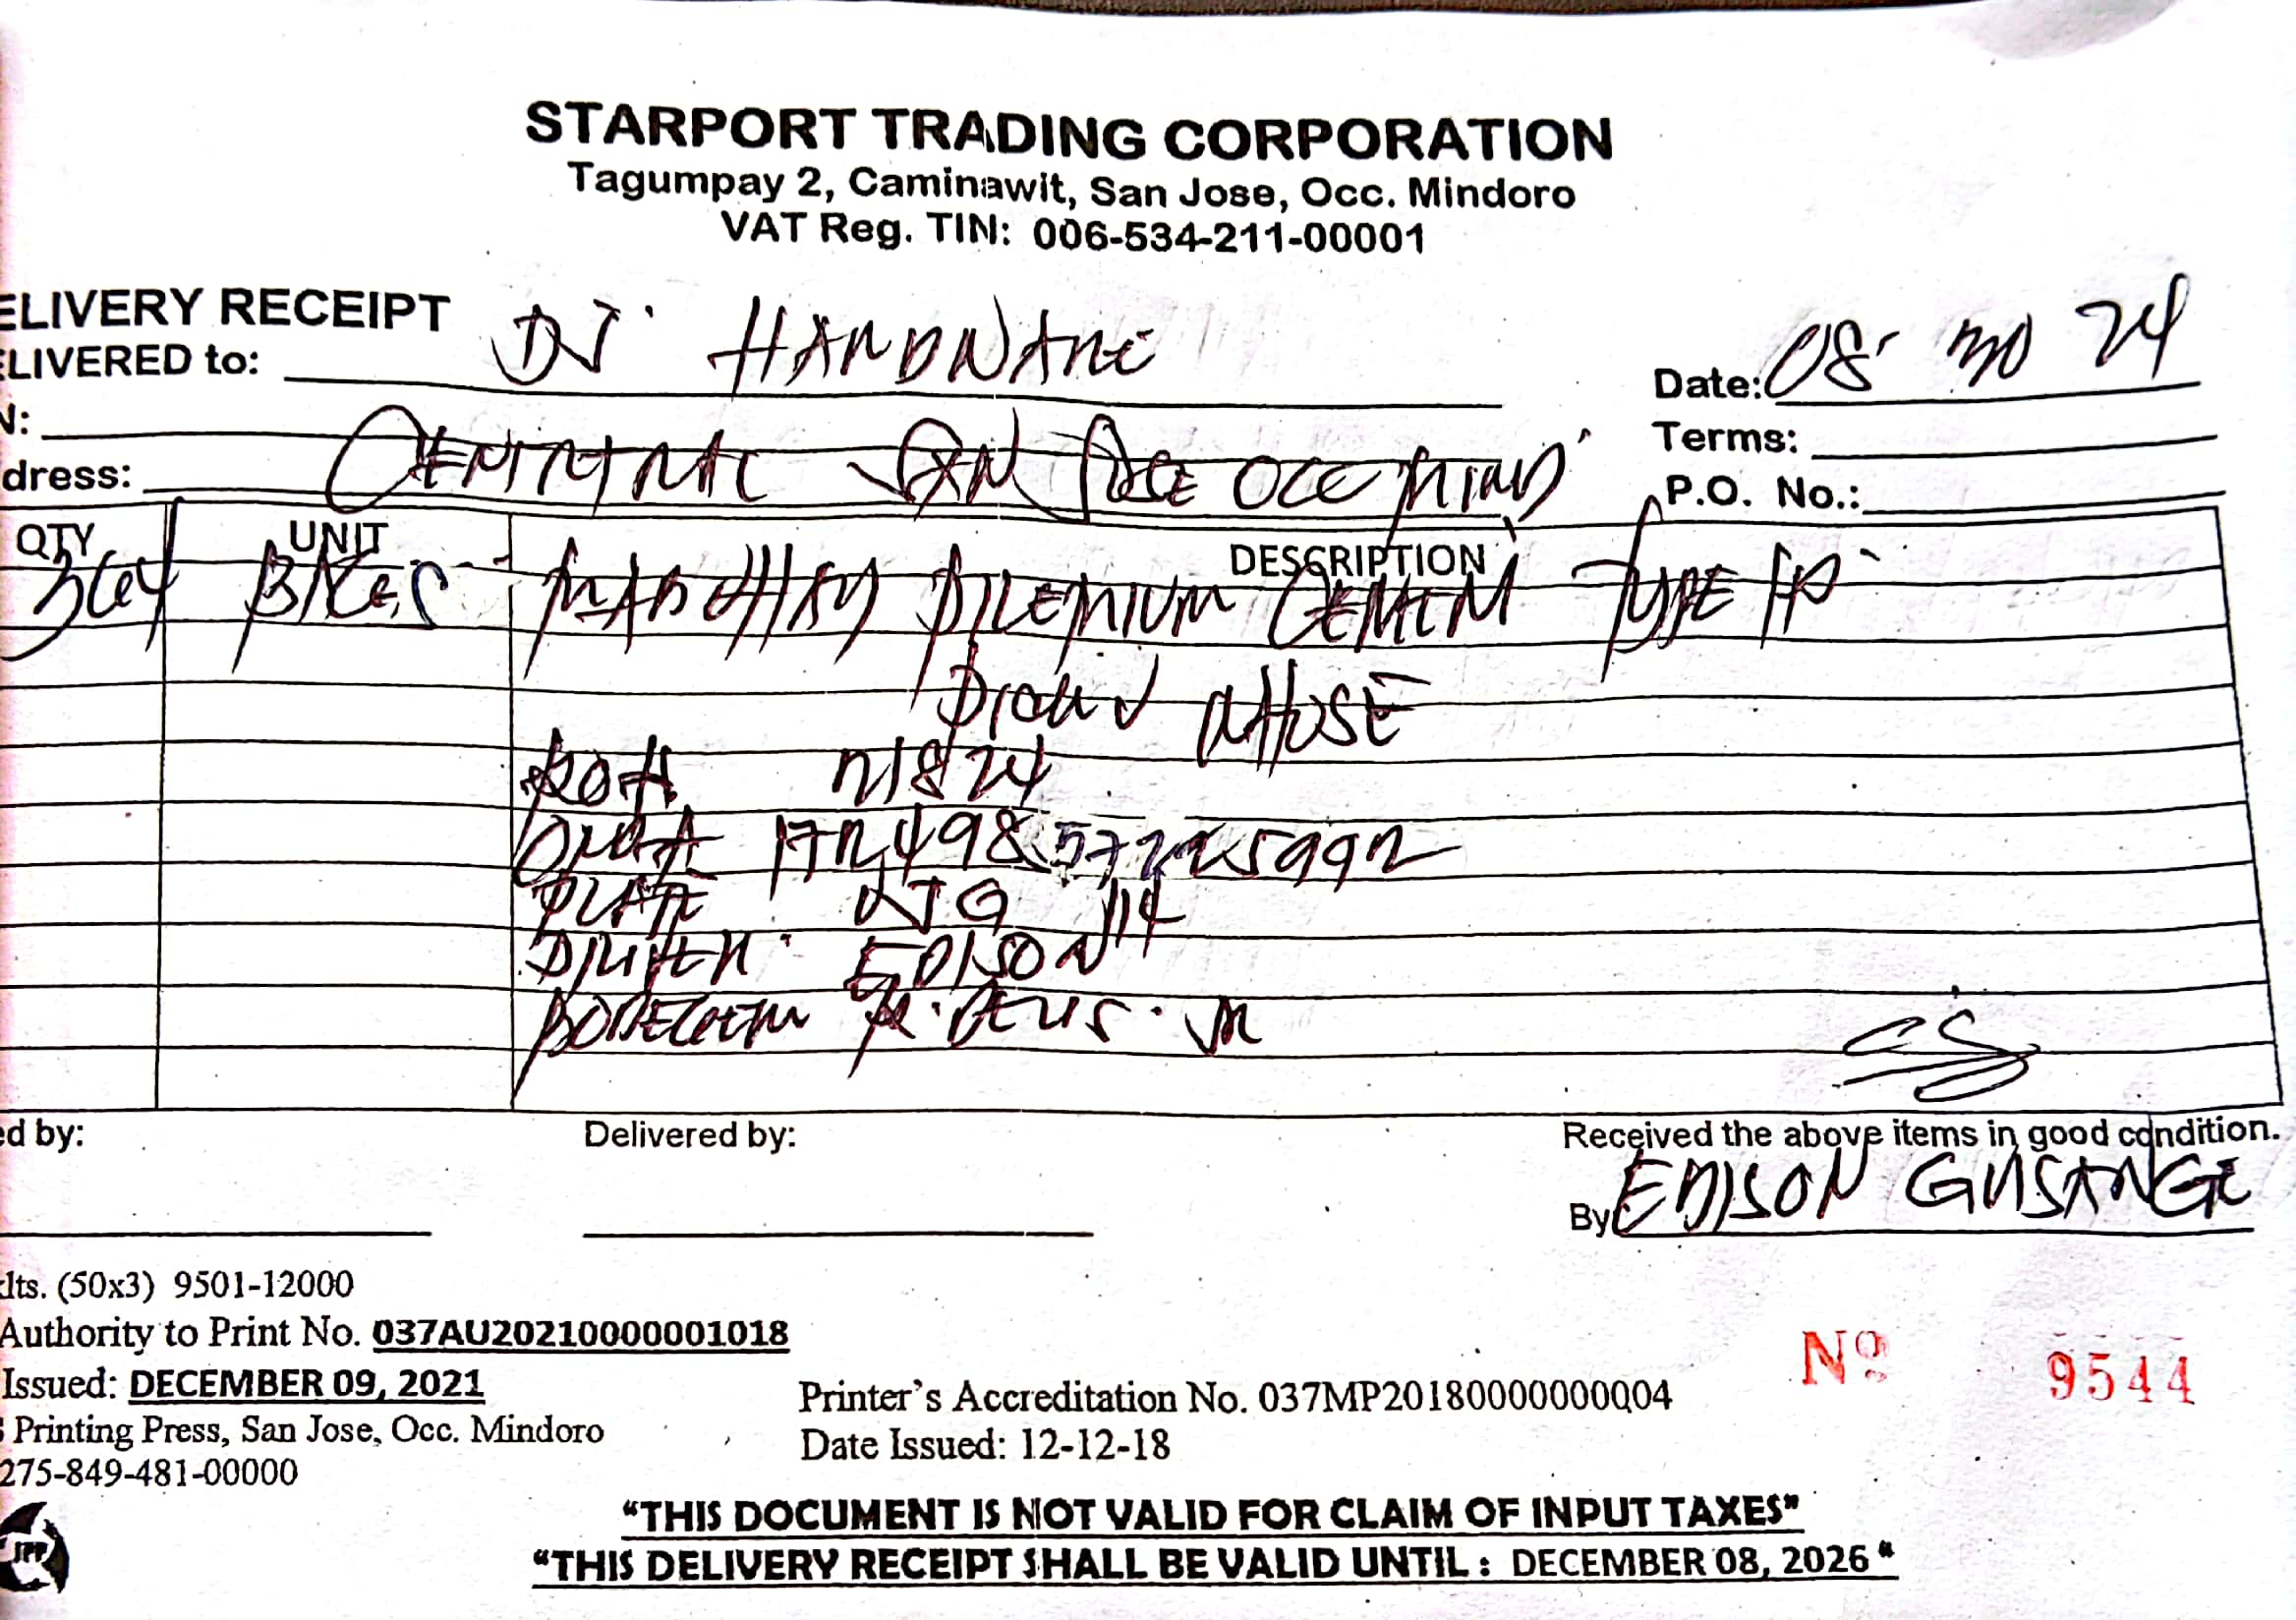 STARPORT TRADING CORPORATION
Tagumpay 2, Caminawit, San Jose, Occ. Mindoro
VAT Reg. TIN: 006-534-211-00001
ELIVERY RECEIPT
ELIVERED to: DJ HARDWARE
Date: 08 30 24
N:
Terms:
dress: CENTRAL SAN JOSE OCC MIND
P.O. No.:
QTY UNIT DESCRIPTION
BAGS PREMIUM CEMENT TYPE 1P
WHOSE
21824
PLATE 114
DRIVER EDISON
JR
ed by:
Delivered by:
Received the above items in good condition.
By EDISON
lts. (50x3) 9501-12000
Authority to Print No. 037AU20210000001018
Issued: DECEMBER 09, 2021
Printing Press, San Jose, Occ. Mindoro
275-849-481-00000
Printer's Accreditation No. 037MP20180000000004
Date Issued: 12-12-18
Nº 9544
JPP
"THIS DOCUMENT IS NOT VALID FOR CLAIM OF INPUT TAXES"
"THIS DELIVERY RECEIPT SHALL BE VALID UNTIL : DECEMBER 08, 2026"